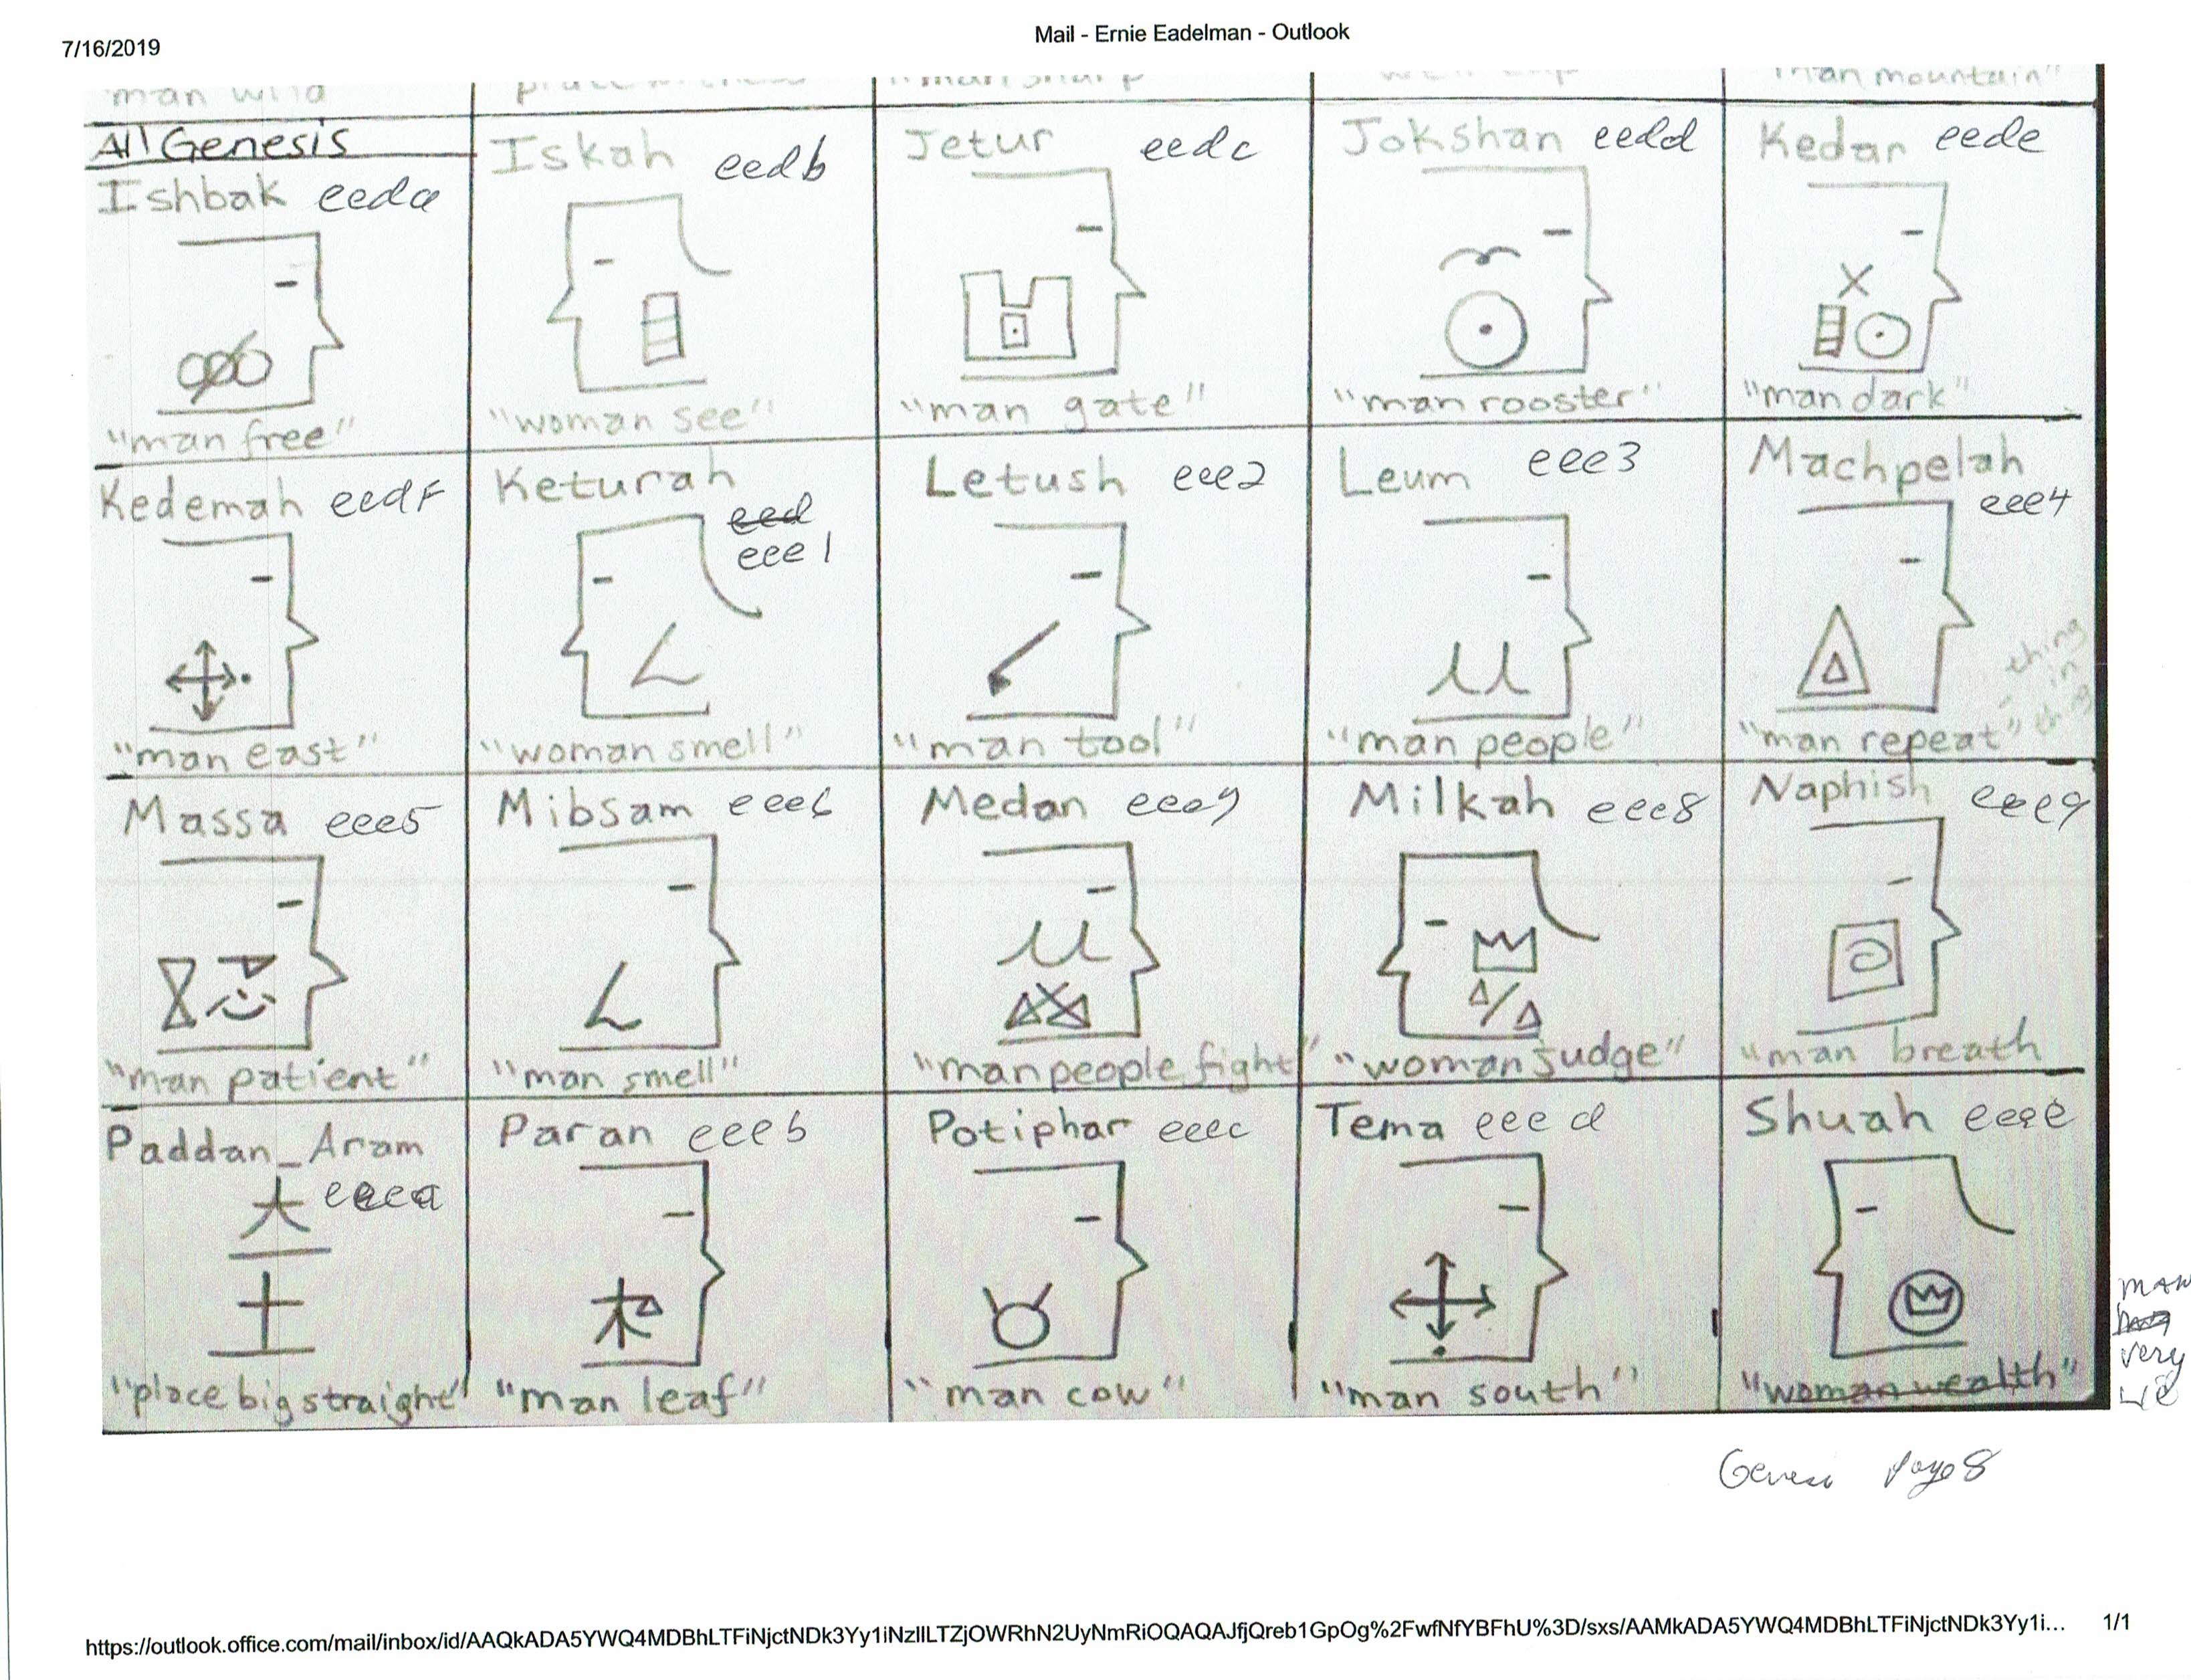 7/16/2019
Mail - Ernie Eadelman - Outlook
"man wild
man mountain"
All Genesis
Ishbak eeda
"man free"
Iskah eedb
"woman see"
Jetur eedc
"man gate"
Jokshan eedd
"man rooster"
Kedar eede
"man dark"
Kedemah eedf
"man east"
Keturah
eed
eee1
"woman smell"
Letush eee2
"man tool"
Leum eee3
"man people"
Machpelah
eee4
"man repeat"
thing
in
thing
Massa eee5
"man patient"
Mibsam eee6
"man smell"
Medan
"man people fight"
Milkah eee8
"woman judge"
Naphish eee9
"man breath
Paddan_Aram
eeea
大
土
"place big straight"
Paran eeeb
"man leaf"
Potiphar eeec
"man cow"
Tema eeed
"man south"
Shuah eeee
"woman wealth"
man
very
Genesis Page 8
https://outlook.office.com/mail/inbox/id/AAQkADA5YWQ4MDBhLTFiNjctNDk3Yy1iNzllLTZjOWRhN2UyNmRiOQAQAJfjQreb1GpOg%2FwfNfYBFhU%3D/sxs/AAMkADA5YWQ4MDBhLTFiNjctNDk3Yy1i... 1/1